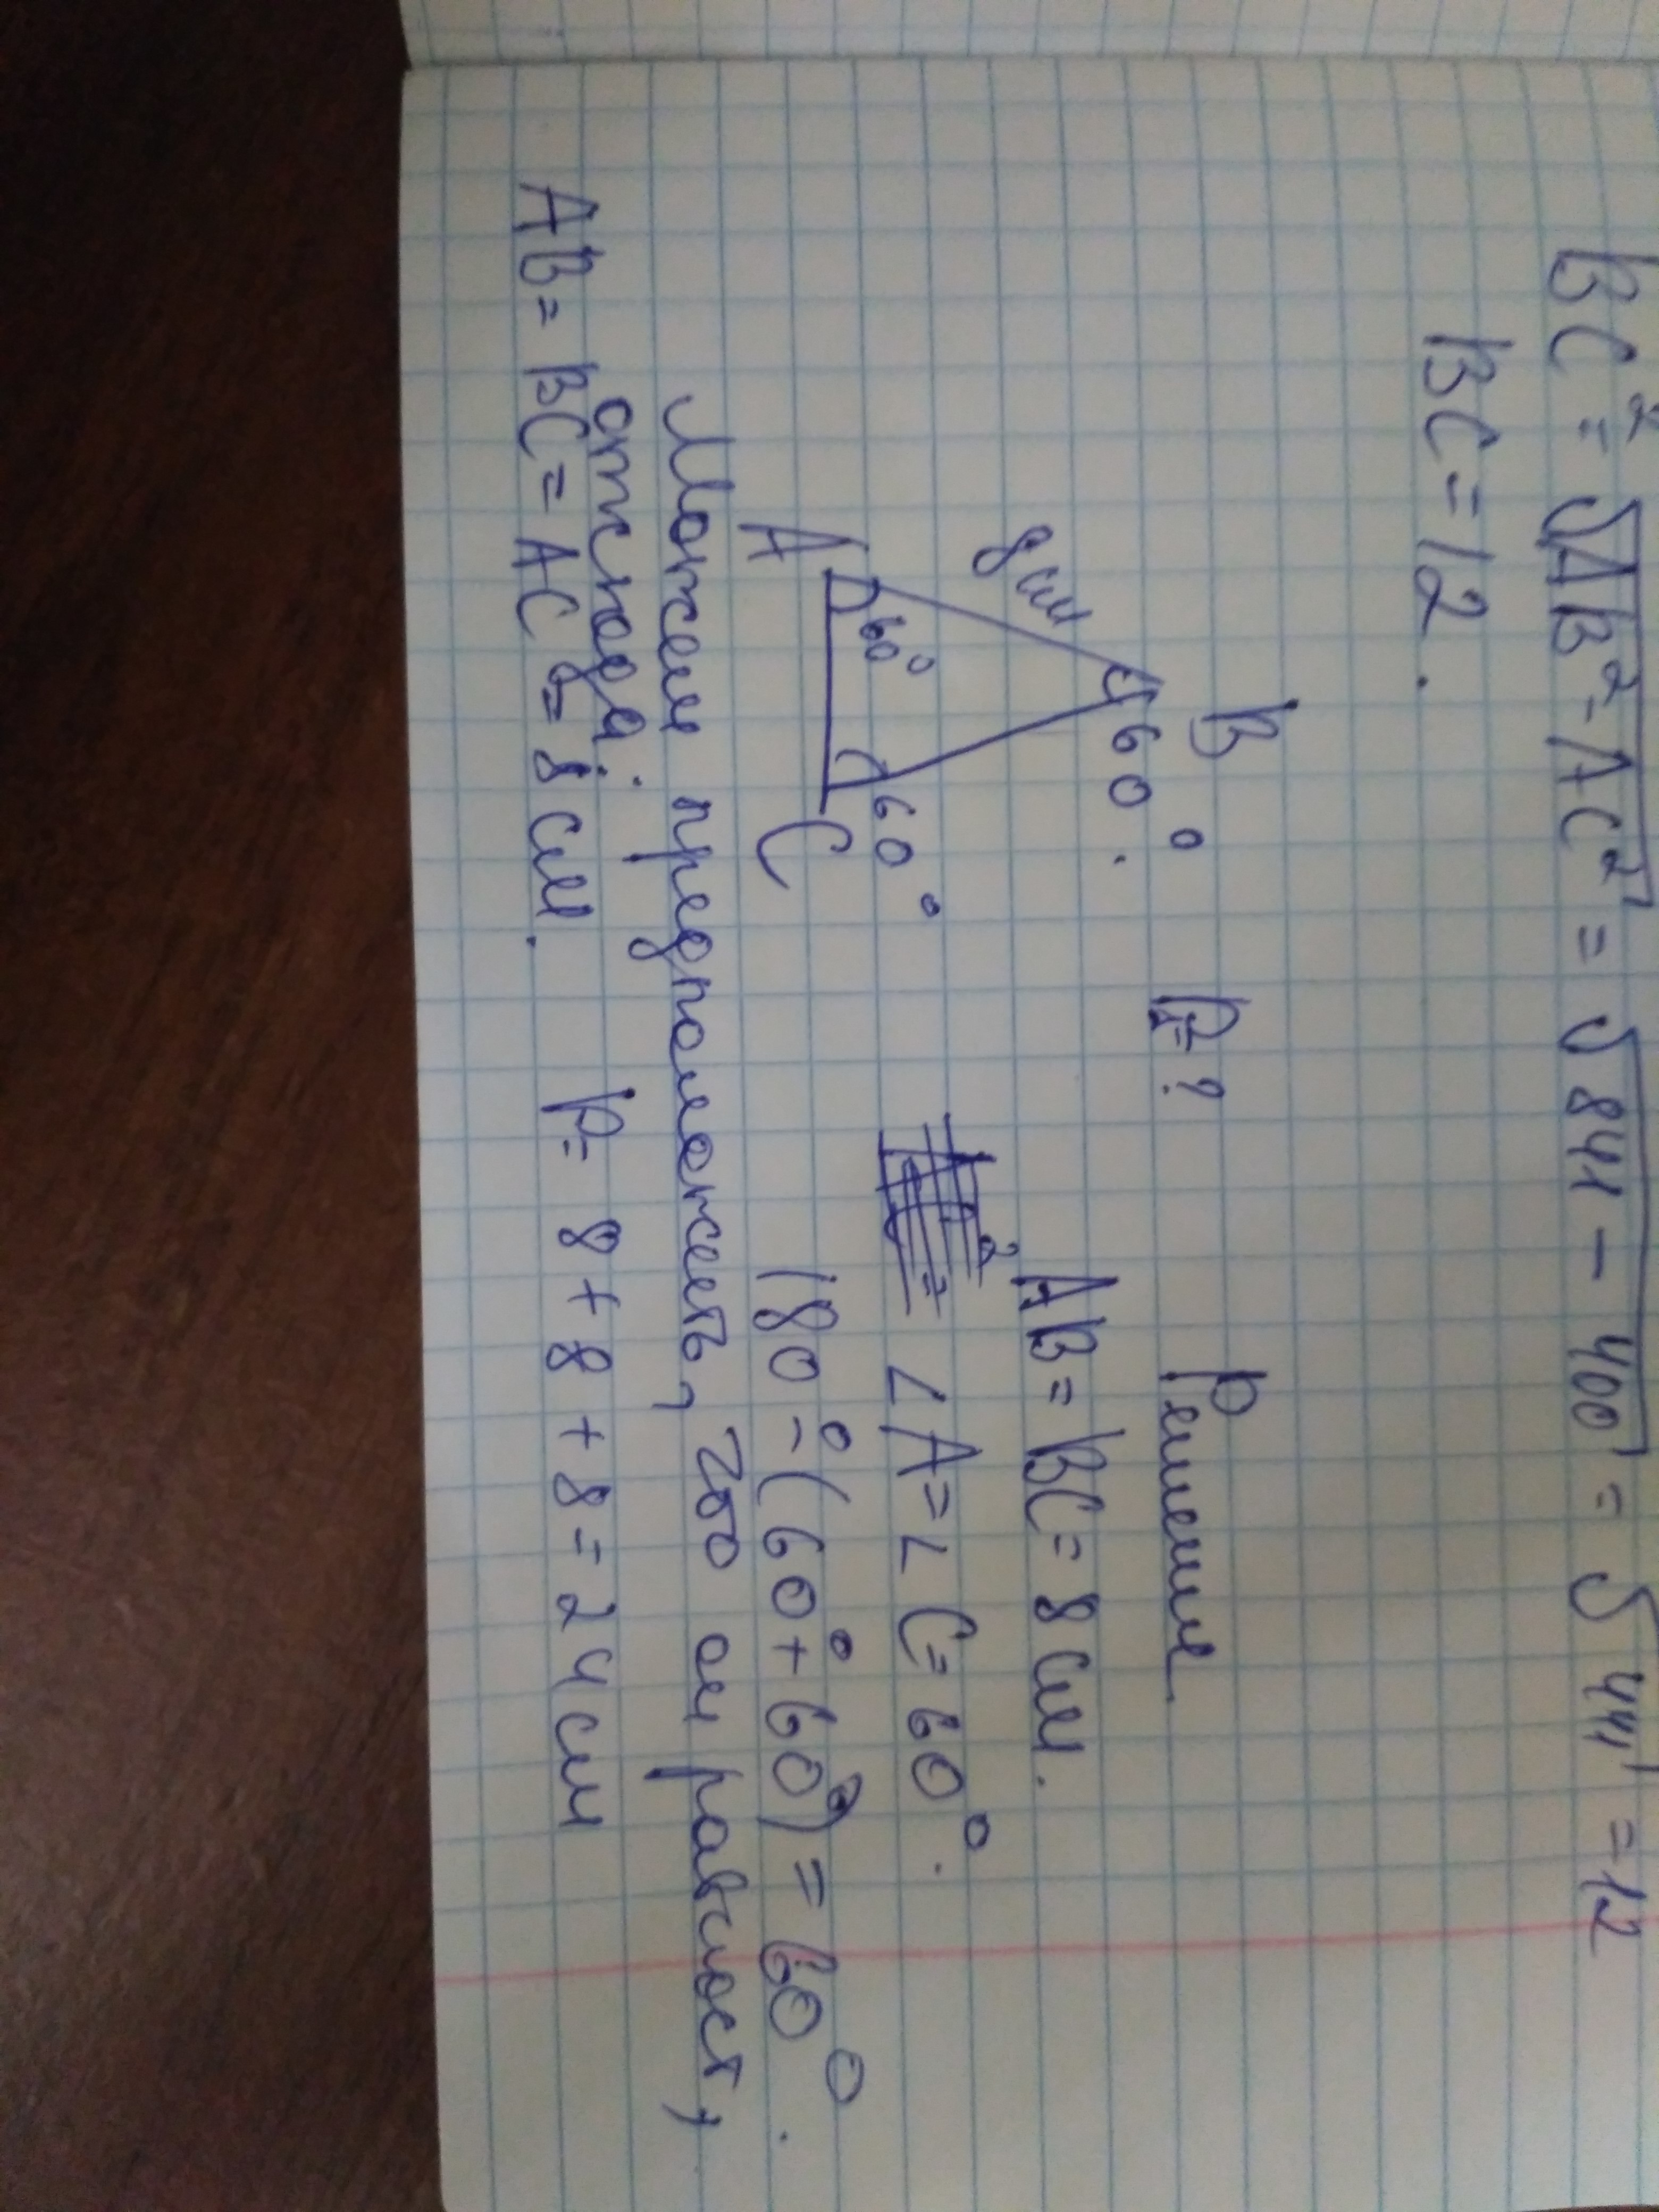 BC² = √AB² - AC² = √841 - 400 = √441 = 12
BC = 12.
B
60°.
8 см
60°
60°
A
C
P = ?
Решение
AB = BC = 8 см.
∠A = ∠C = 60°.
180° - (60° + 60°) = 60°.
Можем предположить, что он равност,
отсюда:
AB = BC = AC = 8 см.
P = 8 + 8 + 8 = 24 см